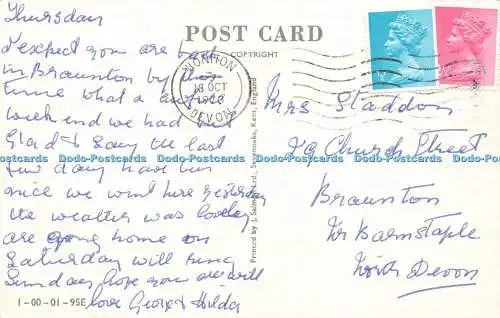 Thursday
I expect you are back
in Braunton by this
time what a awful
week end we had but
Glad to Say the last
few days have been
nice we went here yesterday
the weather was lovely
are going home on
Saturday will ring
Sunday hope you are will
love George & Hilda
1-00-01-95E
POST CARD
COPYRIGHT
HONITON
18 OCT
DEVON
Printed by J. Salmon Ltd., Sevenoaks, Kent, England
Mrs Staddon
Church Street
Braunton
Nr Barnstaple
North Devon
Dodo-Postcards Dodo-Postcards Dodo-Postcards Dodo-Postcards Dodo-Postcards Dodo-Postcards